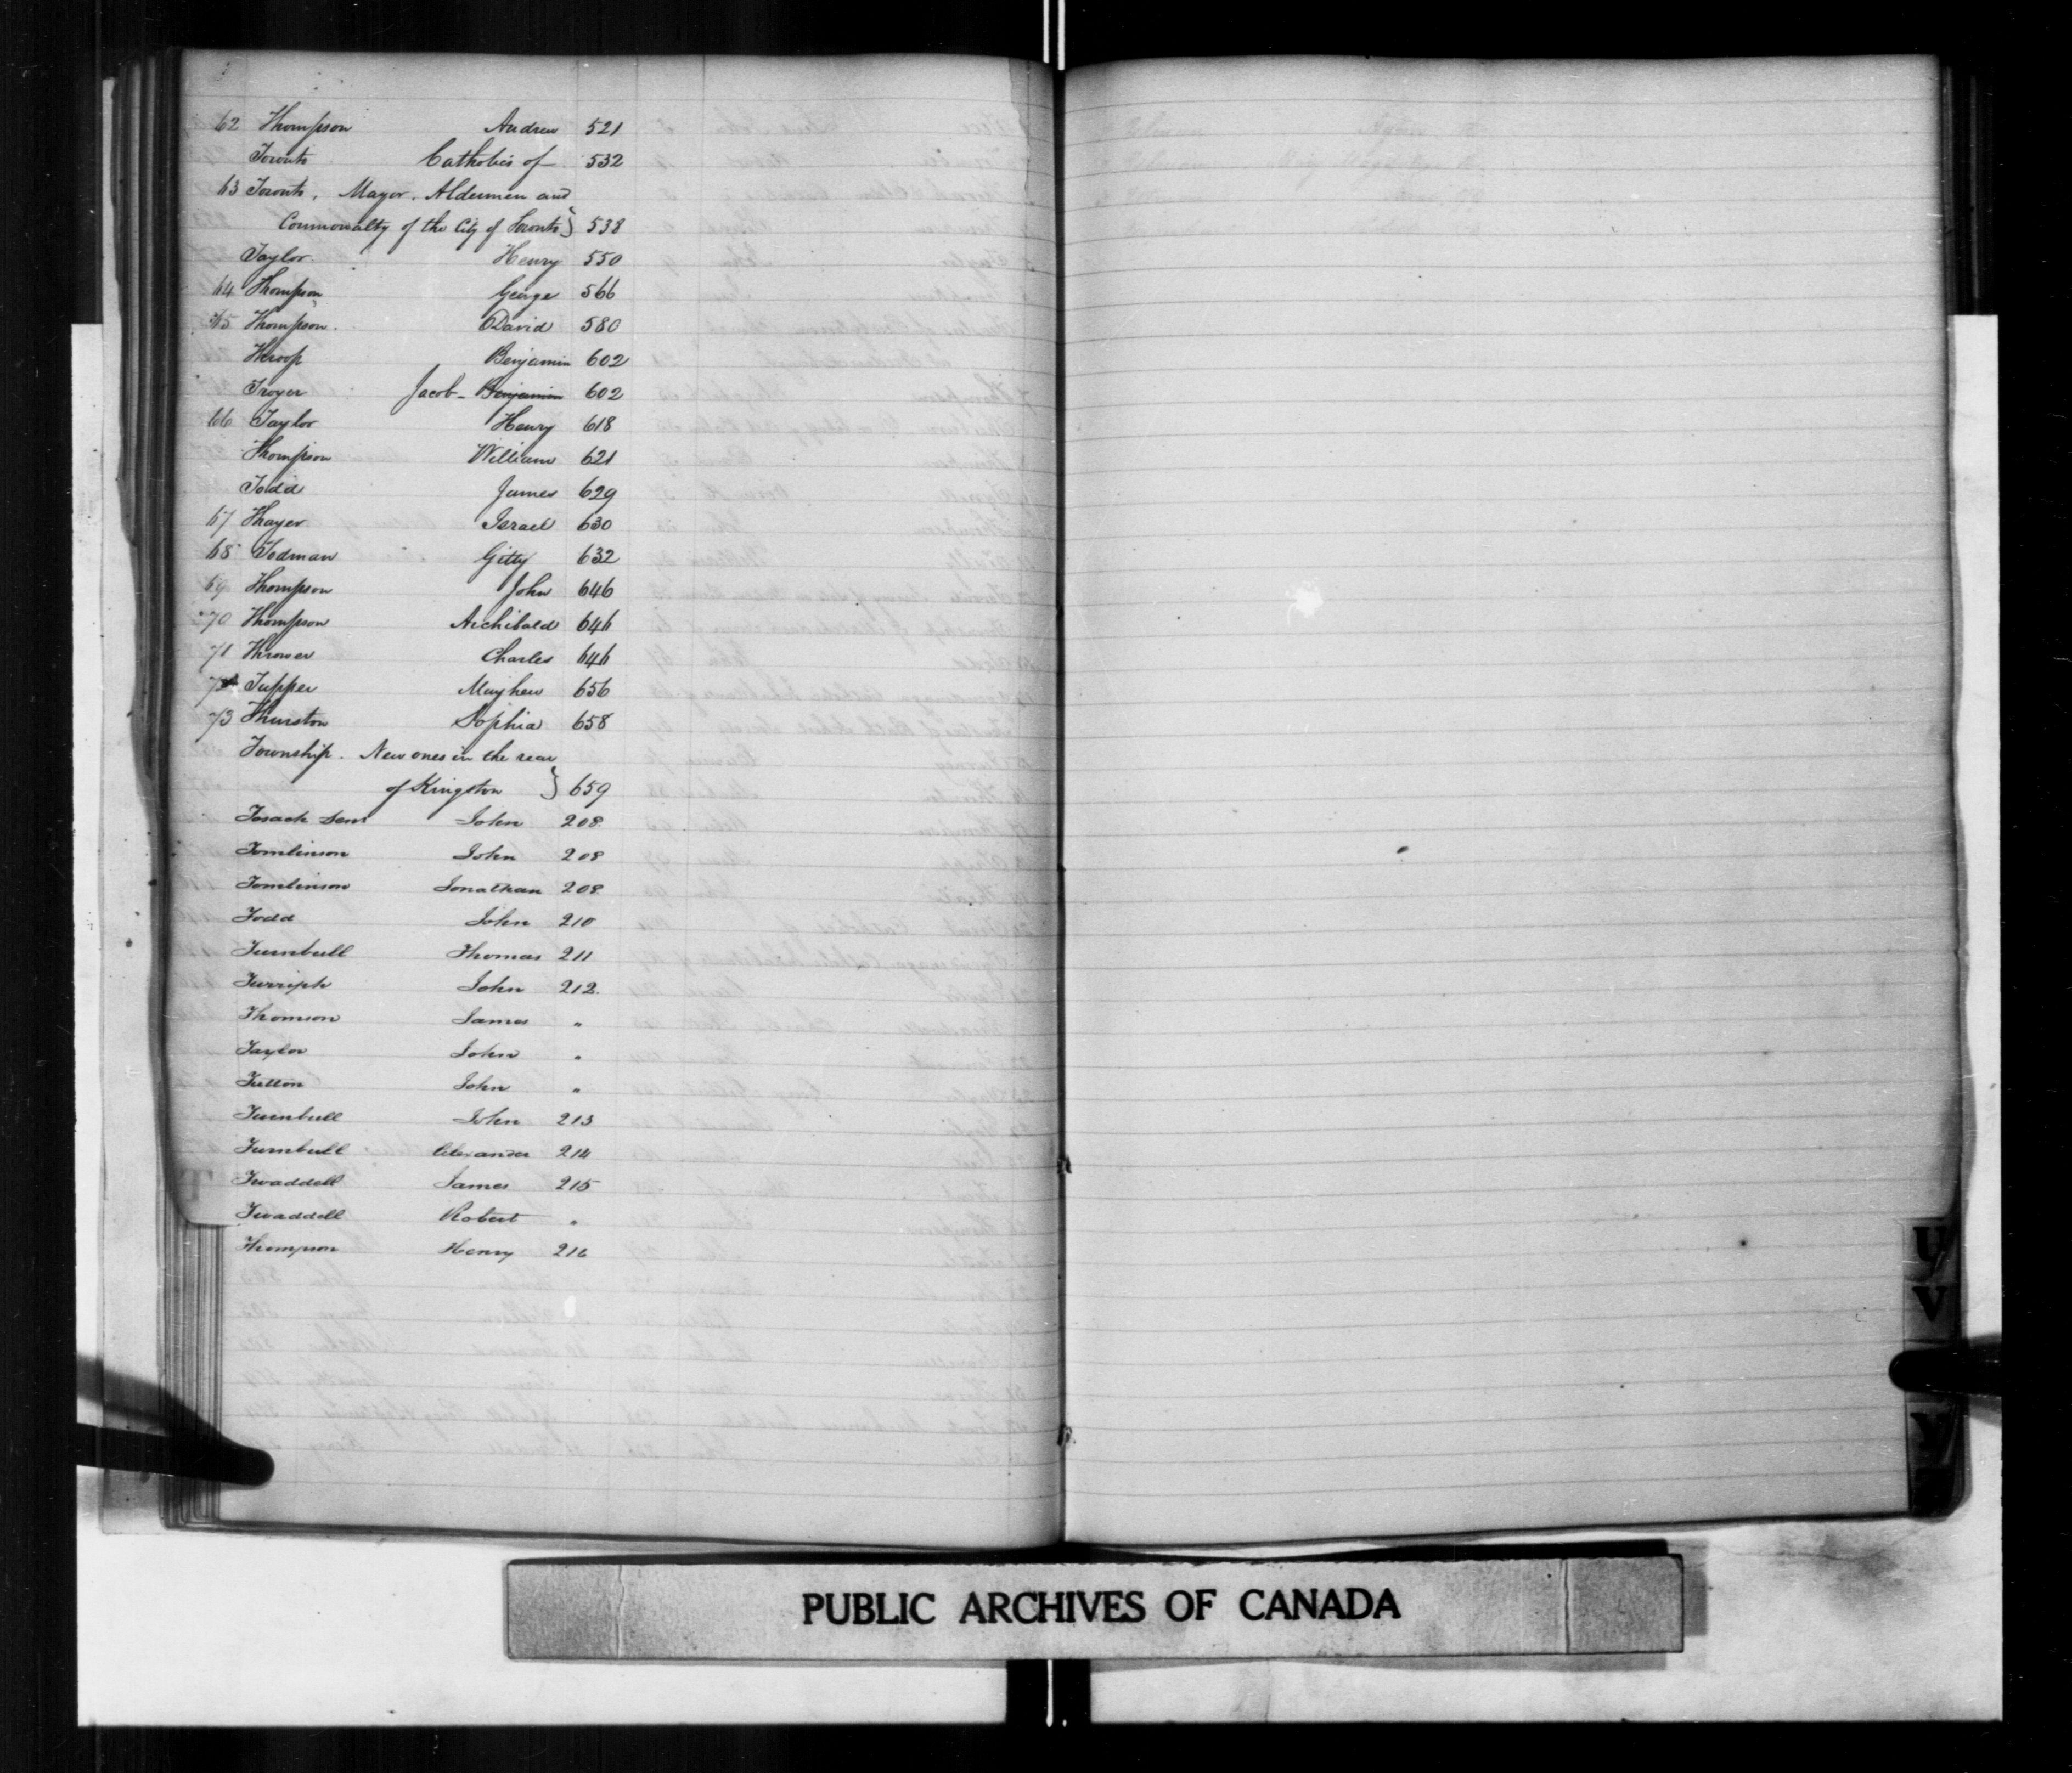 62 Thompson Andrew 521
Toronto Catholics of 532
63 Toronto, Mayor, Aldermen and
Commonalty of the City of Toronto } 538
Taylor Henry 550
64 Thompson George 566
65 Thompson David 580
Throop Benjamin 602
Troyer Jacob - Benjamin 602
66 Taylor Henry 618
Thompson William 621
Todd James 629
67 Thayer Israel 630
68 Todman Gitty 632
69 Thompson John 646
70 Thompson Archibald 646
71 Thrower Charles 646
72 Tupper Mayhew 656
73 Thurston Sophia 658
Township. New ones in the rear
of Kingston } 659
Tosack Senr John 208
Tomlinson John 208
Tomlinson Jonathan 208
Todd John 210
Turnbull Thomas 211
Turriph John 212
Thomson James "
Taylor John "
Tutton John "
Turnbull John 213
Turnbull Alexander 214
Twaddell James 215
Twaddell Robert "
Thompson Henry 216
U
V
Y
PUBLIC ARCHIVES OF CANADA